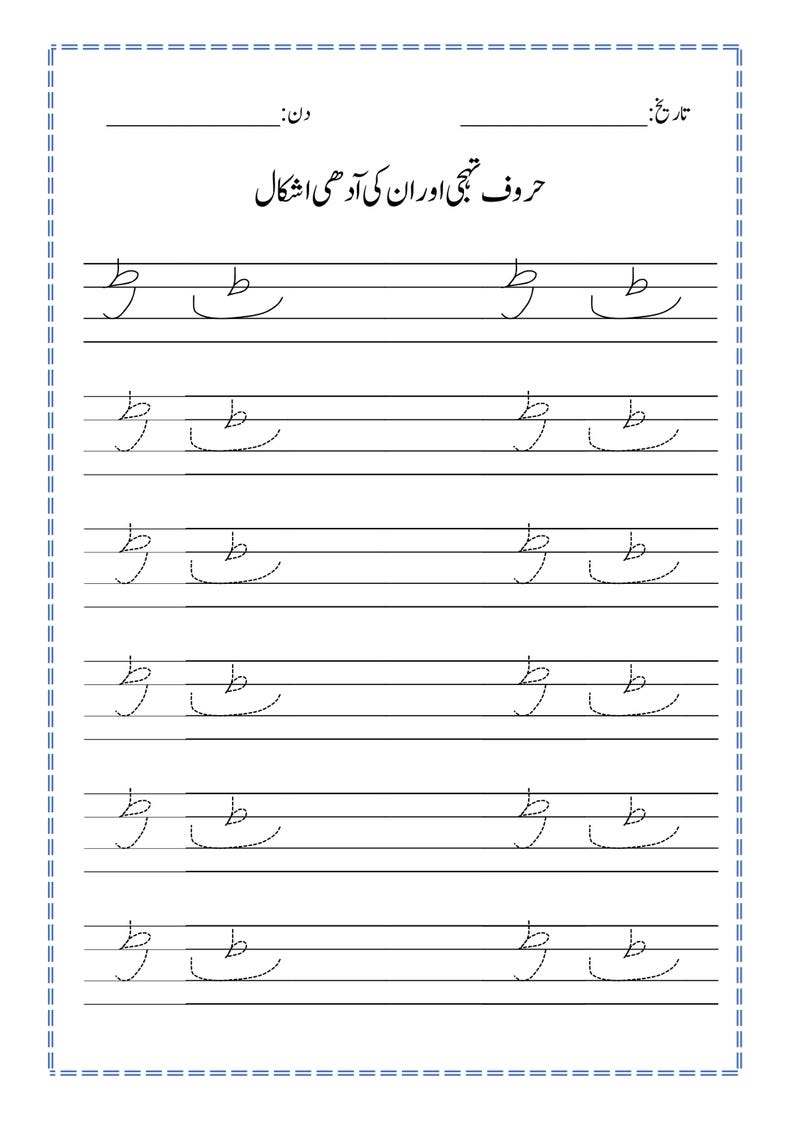 تاریخ:____________ دن:____________
حروف تہجی اور ان کی آدھی اشکال
ٹ ڑ ٹ ڑ
ٹ ڑ ٹ ڑ
ٹ ڑ ٹ ڑ
ٹ ڑ ٹ ڑ
ٹ ڑ ٹ ڑ
ٹ ڑ ٹ ڑ